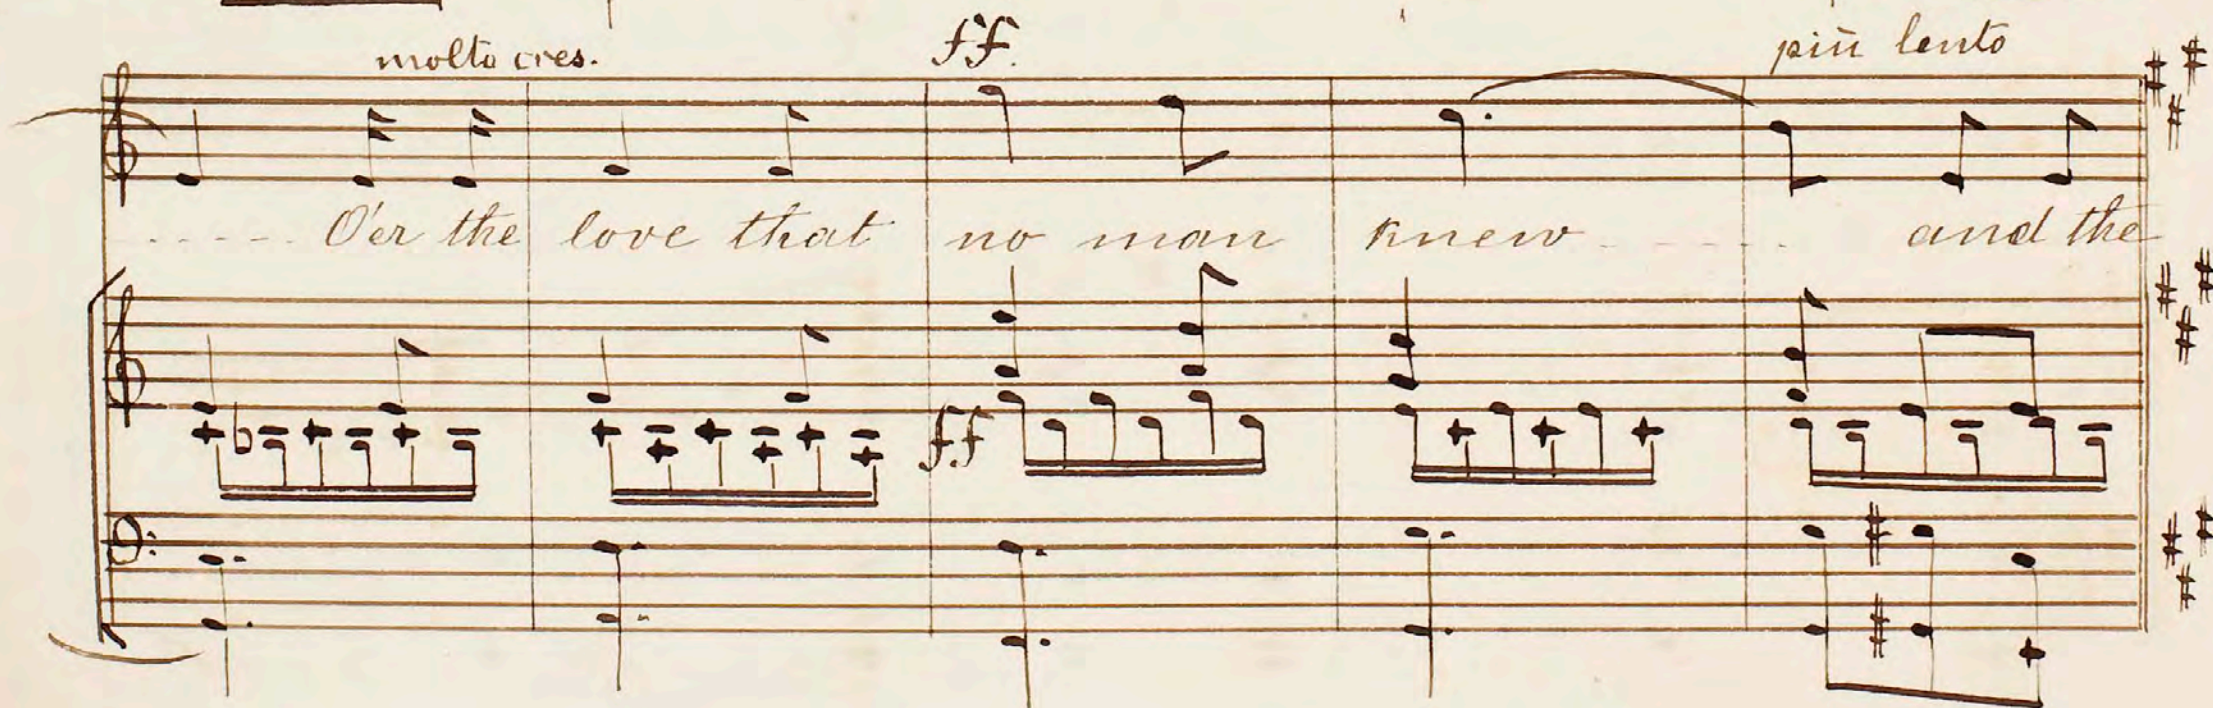 molto cres. ff. più lento
O'er the love that no man knew and the
ff